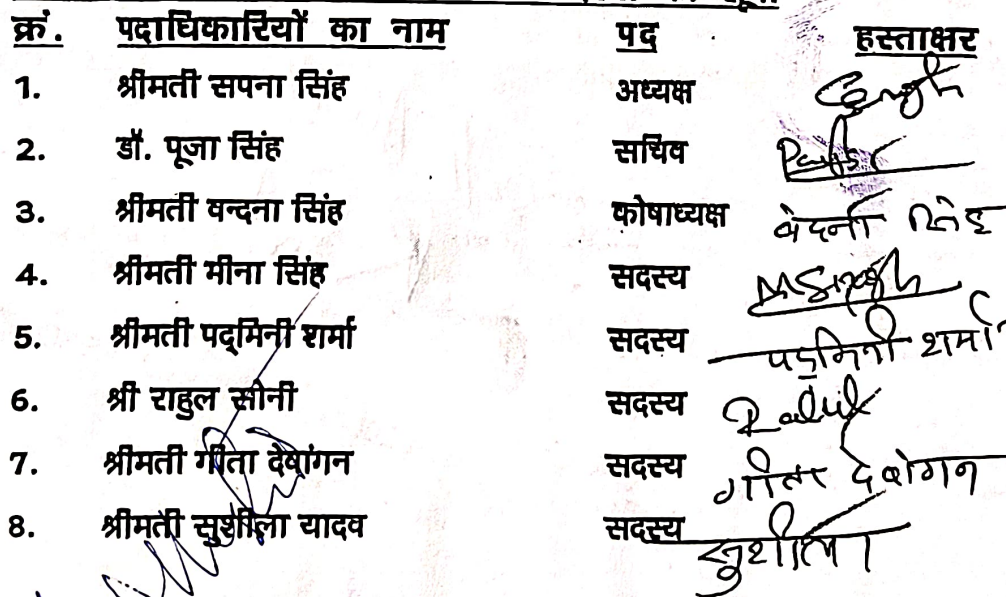 क्रं. पदाधिकारियों का नाम पद हस्ताक्षर
1. श्रीमती सपना सिंह अध्यक्ष Singh
2. डॉ. पूजा सिंह सचिव
3. श्रीमती वन्दना सिंह कोषाध्यक्ष वंदना सिंह
4. श्रीमती मीना सिंह सदस्य MSingh
5. श्रीमती पद्मिनी शर्मा सदस्य पद्मिनी शर्मा
6. श्री राहुल सोनी सदस्य Rahul
7. श्रीमती गीता देवांगन सदस्य गीता देवांगन
8. श्रीमती सुशीला यादव सदस्य सुशीला